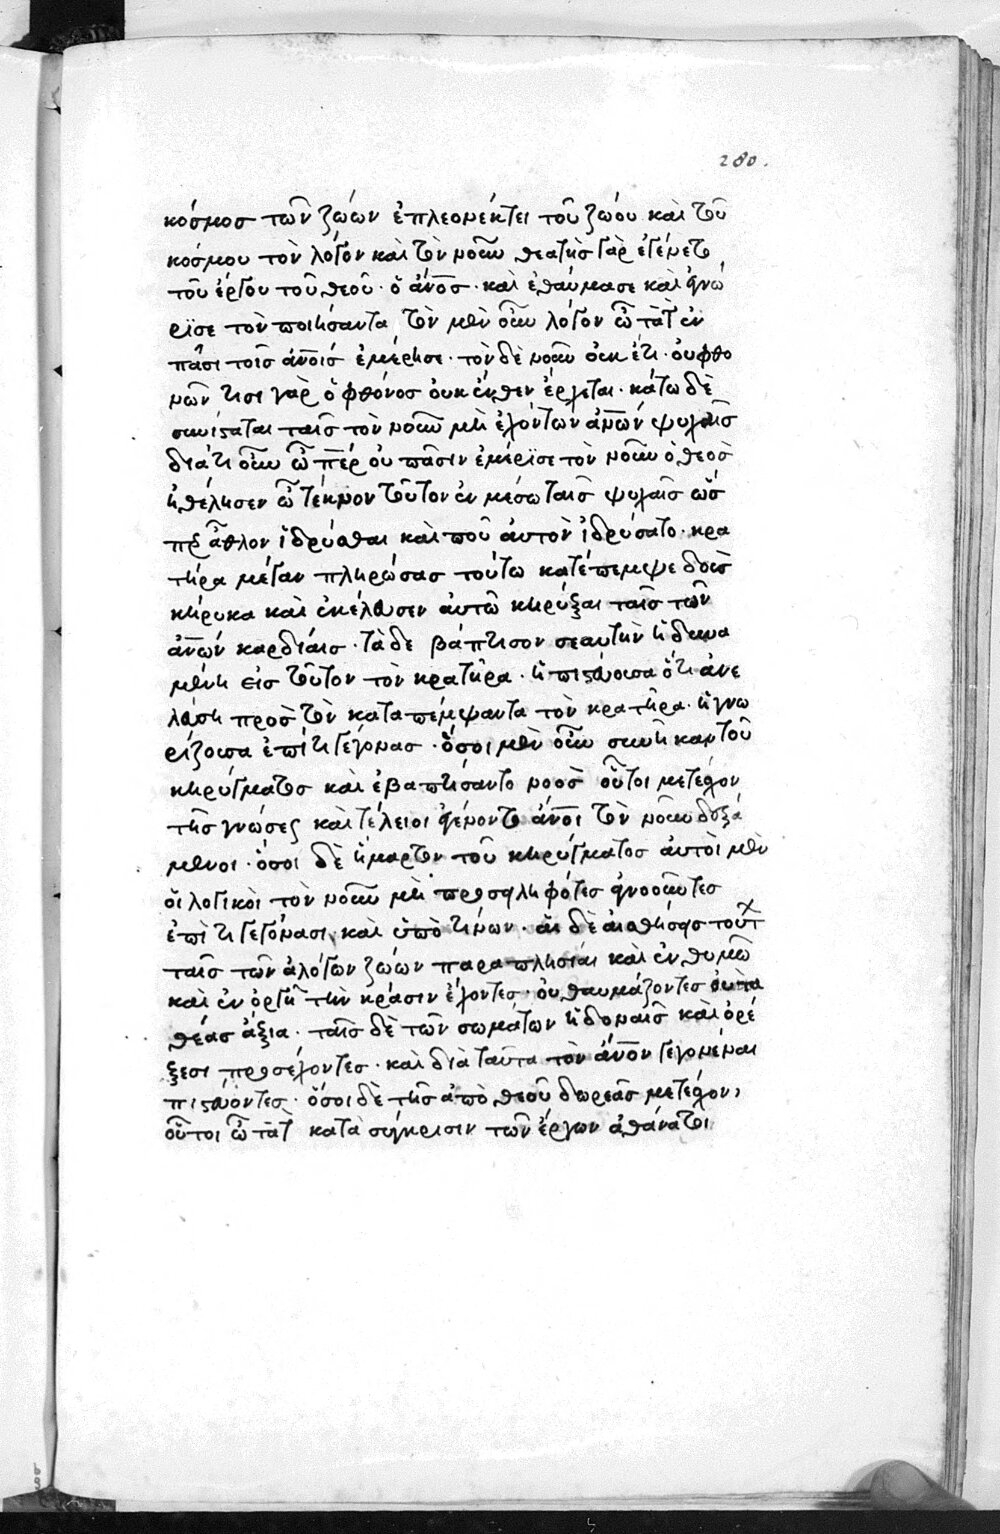 280.
κόσμοσ τῶν ζώων ἐπλεονέκτει τοῦ ζώου καὶ τοῦ
κόσμου τὸν λόγον καὶ τὸν νοῦν θεατὴσ γὰρ ἐγένετο
τοῦ ἔργου τοῦ θεοῦ · ὁ ἄν̅οσ · καὶ ἐθαύμασε καὶ ἐγνώ
ρϊσε τὸν ποιήσαντα τὸν μὲν οὖν λόγον ὦ τὰτ ἐν
πᾶσι τοῖσ ἀν̅οισ ἐμέρησε · τὸν δὲ νοῦν οὐκ έτι · οὐ φθο
νῶν τισι γὰρ ὁ φθόνοσ οὐκ ἔνθεν ἔρχεται · κάτω δὲ
συνίσταται ταῖσ τὸν νοῦν μὴ ἐχόντων ἀν̅ων ψυχαῖσ
διάτι οὖν ὦ π̅ερ οὐ πᾶσιν ἐμέρϊσε τὸν νοῦν ὁ θεὸσ
ἠθέλησεν ὦ τέκνον τοῦτον ἐν μέσω ταῖσ ψυχαῖσ ὥσ
πρ ἆθλον ἱδρύσθαι καὶ ποῦ αὐτὸν ἱδρύσατο · κρα
τῆρα μέγαν πληρώσασ τούτω κατέπεμψε δοὺσ
κήρυκα καὶ ἐκέλευσεν αὐτῶ κηρύξαι ταῖσ τῶν
ἀν̅ων καρδίαισ · τάδε βάπτισον σεαυτὴν ἡ δυνα
μένη εἰσ τοῦτον τὸν κρατῆρα · ἡ πιστεύουσα ὅτι ἀνε
λεύση πρὸσ τὸν καταπέμψαντα τὸν κρατῆρα · ἡ γνω
ρίζουσα ἐπὶ τι γέγονασ · ὅσοι μὲν οὖν συνῆκαν τοῦ
κηρύγματοσ καὶ ἐβαπτίσαντο νοοσ οὗτοι μετέχον
τῆσ γνώσεσ καὶ τέλειοι ἐγένοντο ἄν̅οι τὸν νοῦν δεξά
μενοι · ὅσοι δὲ ἥμαρτον τοῦ κηρύγματοσ αὐτοὶ μὲν
οἱ λογικοὶ τὸν νοῦν μὴ προσηληφότεσ ἀγνοοῦντεσ
ἐπὶ τι γεγόνασι καὶ ὑπὸ τίνων · αἱ δὲ αἰσθήσησ τούτ
ταῖσ τῶν ἀλόγων ζώων παραπλησίαι καὶ ἐν θυμῶ
καὶ ἐν ὀργῆ τὴν κράσιν ἔχοντεσ · οὐ θαυμάζοντεσ οὐ τὰ
θέασ ἄξια · ταῖσ δὲ τῶν σωμάτων ἡδοναῖσ καὶ ὀρέ
ξεσι προσέχοντεσ · καὶ διὰ ταῦτα τὸν ἄν̅ον γεγονέναι
πιστεύοντεσ · ὅσοι δὲ τῆσ ἀπὸ θεοῦ δωρεᾶσ μετέχον,
οὗτοι ὦ τὰτ κατὰ σύγκρισιν τῶν ἔργων ἀθάνατοι